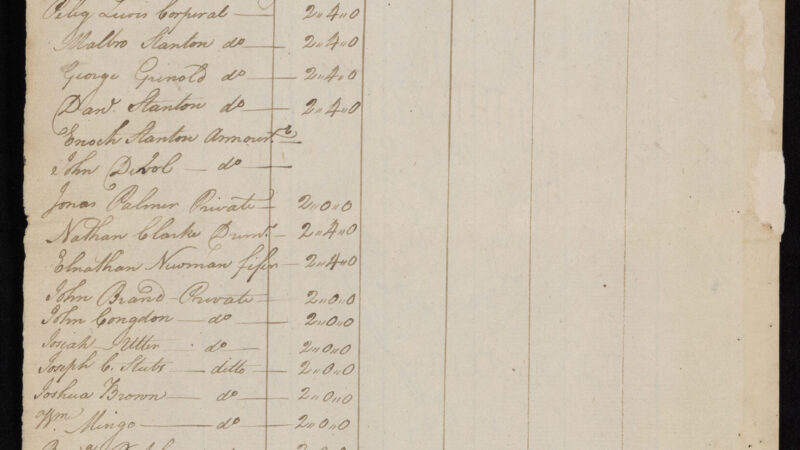 Peleg Lewis Corperal — 2„4„0
Malbro Stanton do — 2„4„0
George Grinold do — 2„4„0
Danl. Stanton do — 2„4„0
Enoch Stanton Armourr —
John Devol — do —
Jonas Palmer Private — 2„0„0
Nathan Clarke Drumr — 2„4„0
Elnathan Newman fifer — 2„4„0
John Brand — Private — 2„0„0
John Congdon — do — 2„0„0
Josiah Utter — do — 2„0„0
Joseph C. Stubs — ditto — 2„0„0
Joshua Brown — do — 2„0„0
Wm Mingo — do — 2„0„0